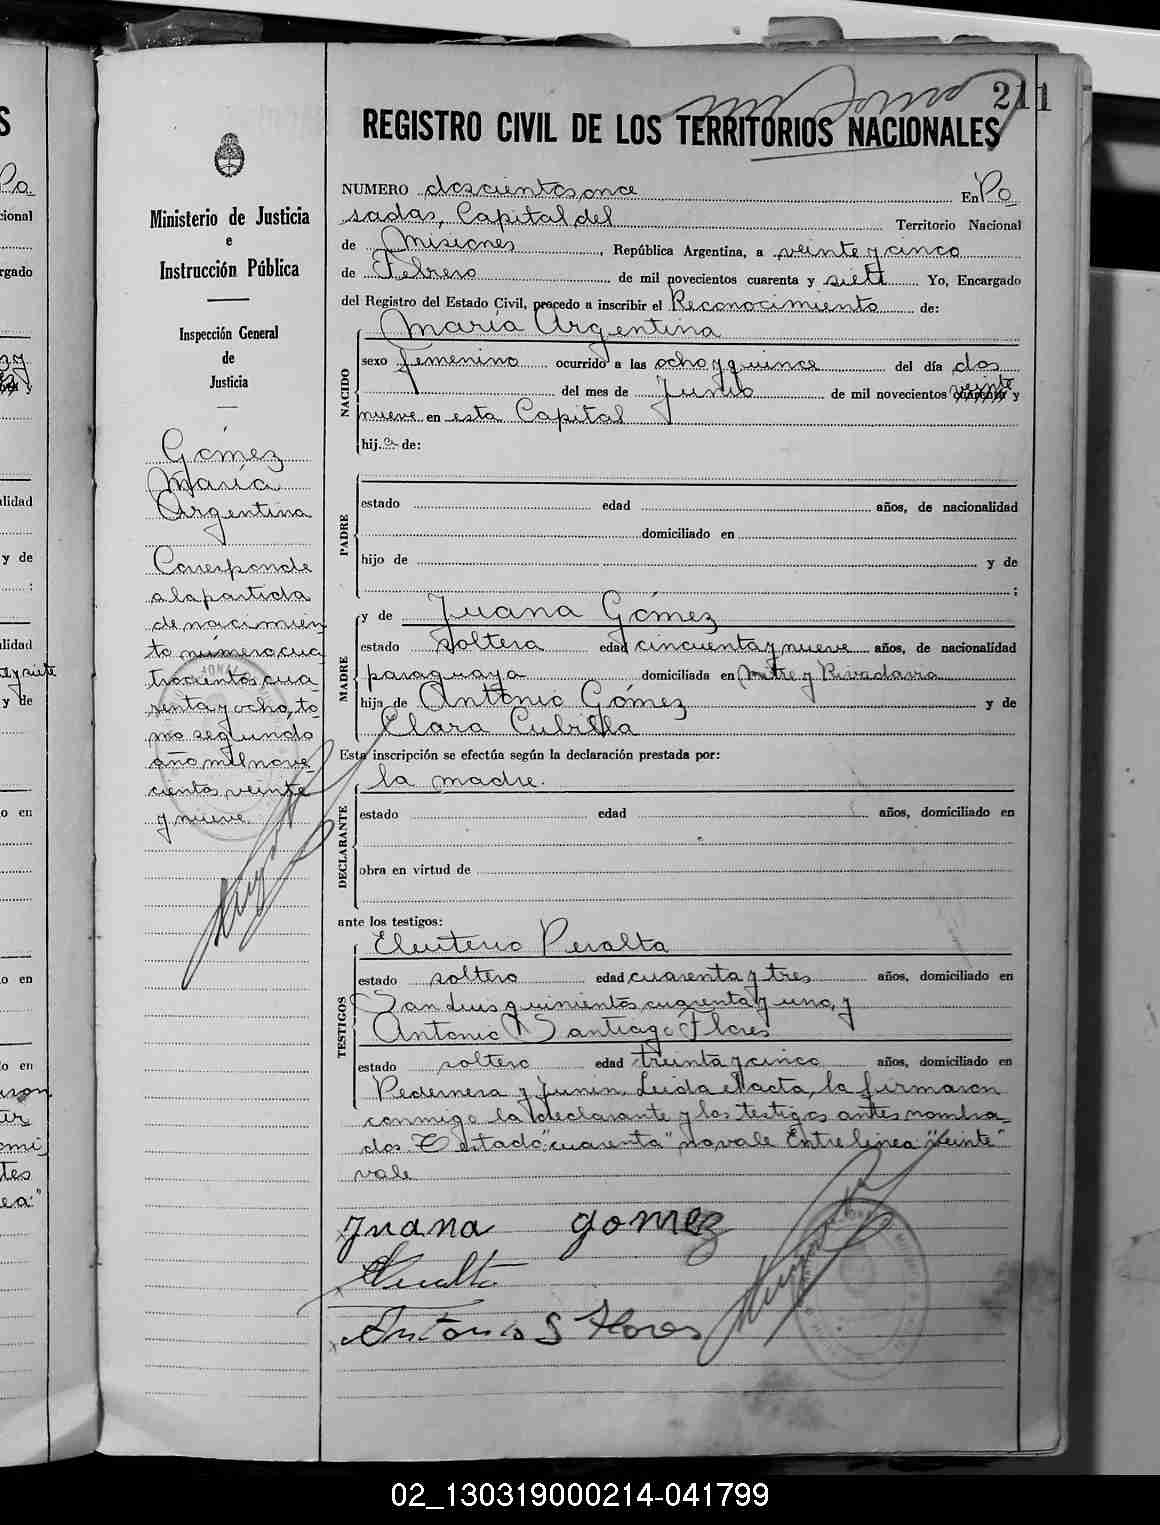 211
REGISTRO CIVIL DE LOS TERRITORIOS NACIONALES
NUMERO doscientos once En Po
sadas, Capital del Territorio Nacional
de Misiones, República Argentina, a veinte y cinco
de Febrero de mil novecientos cuarenta y siete Yo, Encargado
del Registro del Estado Civil, procedo a inscribir el Reconocimiento de:
NACIDO
María Argentina
sexo femenino ocurrido a las ocho y quince del día dos
del mes de Junio de mil novecientos cuarenta veinte y
nueve en esta Capital
hija de:
PADRE
estado edad años, de nacionalidad
domiciliado en
hijo de y de
:
MADRE
y de Juana Gómez
estado soltera edad cincuenta y nueve años, de nacionalidad
paraguaya domiciliada en Mitre y Rivadavia
hija de Antonio Gómez y de
Clara Cubilla
Esta inscripción se efectúa según la declaración prestada por:
DECLARANTE
la madre.
estado edad años, domiciliado en
obra en virtud de
ante los testigos:
TESTIGOS
Eleuterio Peralta
estado soltero edad cuarenta y tres años, domiciliado en
San Luis quinientos cuarenta y uno, y
Antonio Santiago Flores
estado soltero edad treinta y cinco años, domiciliado en
Pedernera y Junin. Leida el acta, la firmaron
conmigo la declarante y los testigos antes nombra-
dos. Testado "cuarenta" no vale Entre linea: "veinte"
vale
Juana gomez
Peralta
Antonio S Flores
Ministerio de Justicia
e
Instrucción Pública
Inspección General
de
Justicia
Gómez
María
Argentina
Corresponde
a la partida
de nacimien
to número cua
trocientos cua-
renta y ocho, to-
mo segundo
año mil nove-
cientos veinte
y nueve
02_130319000214-041799